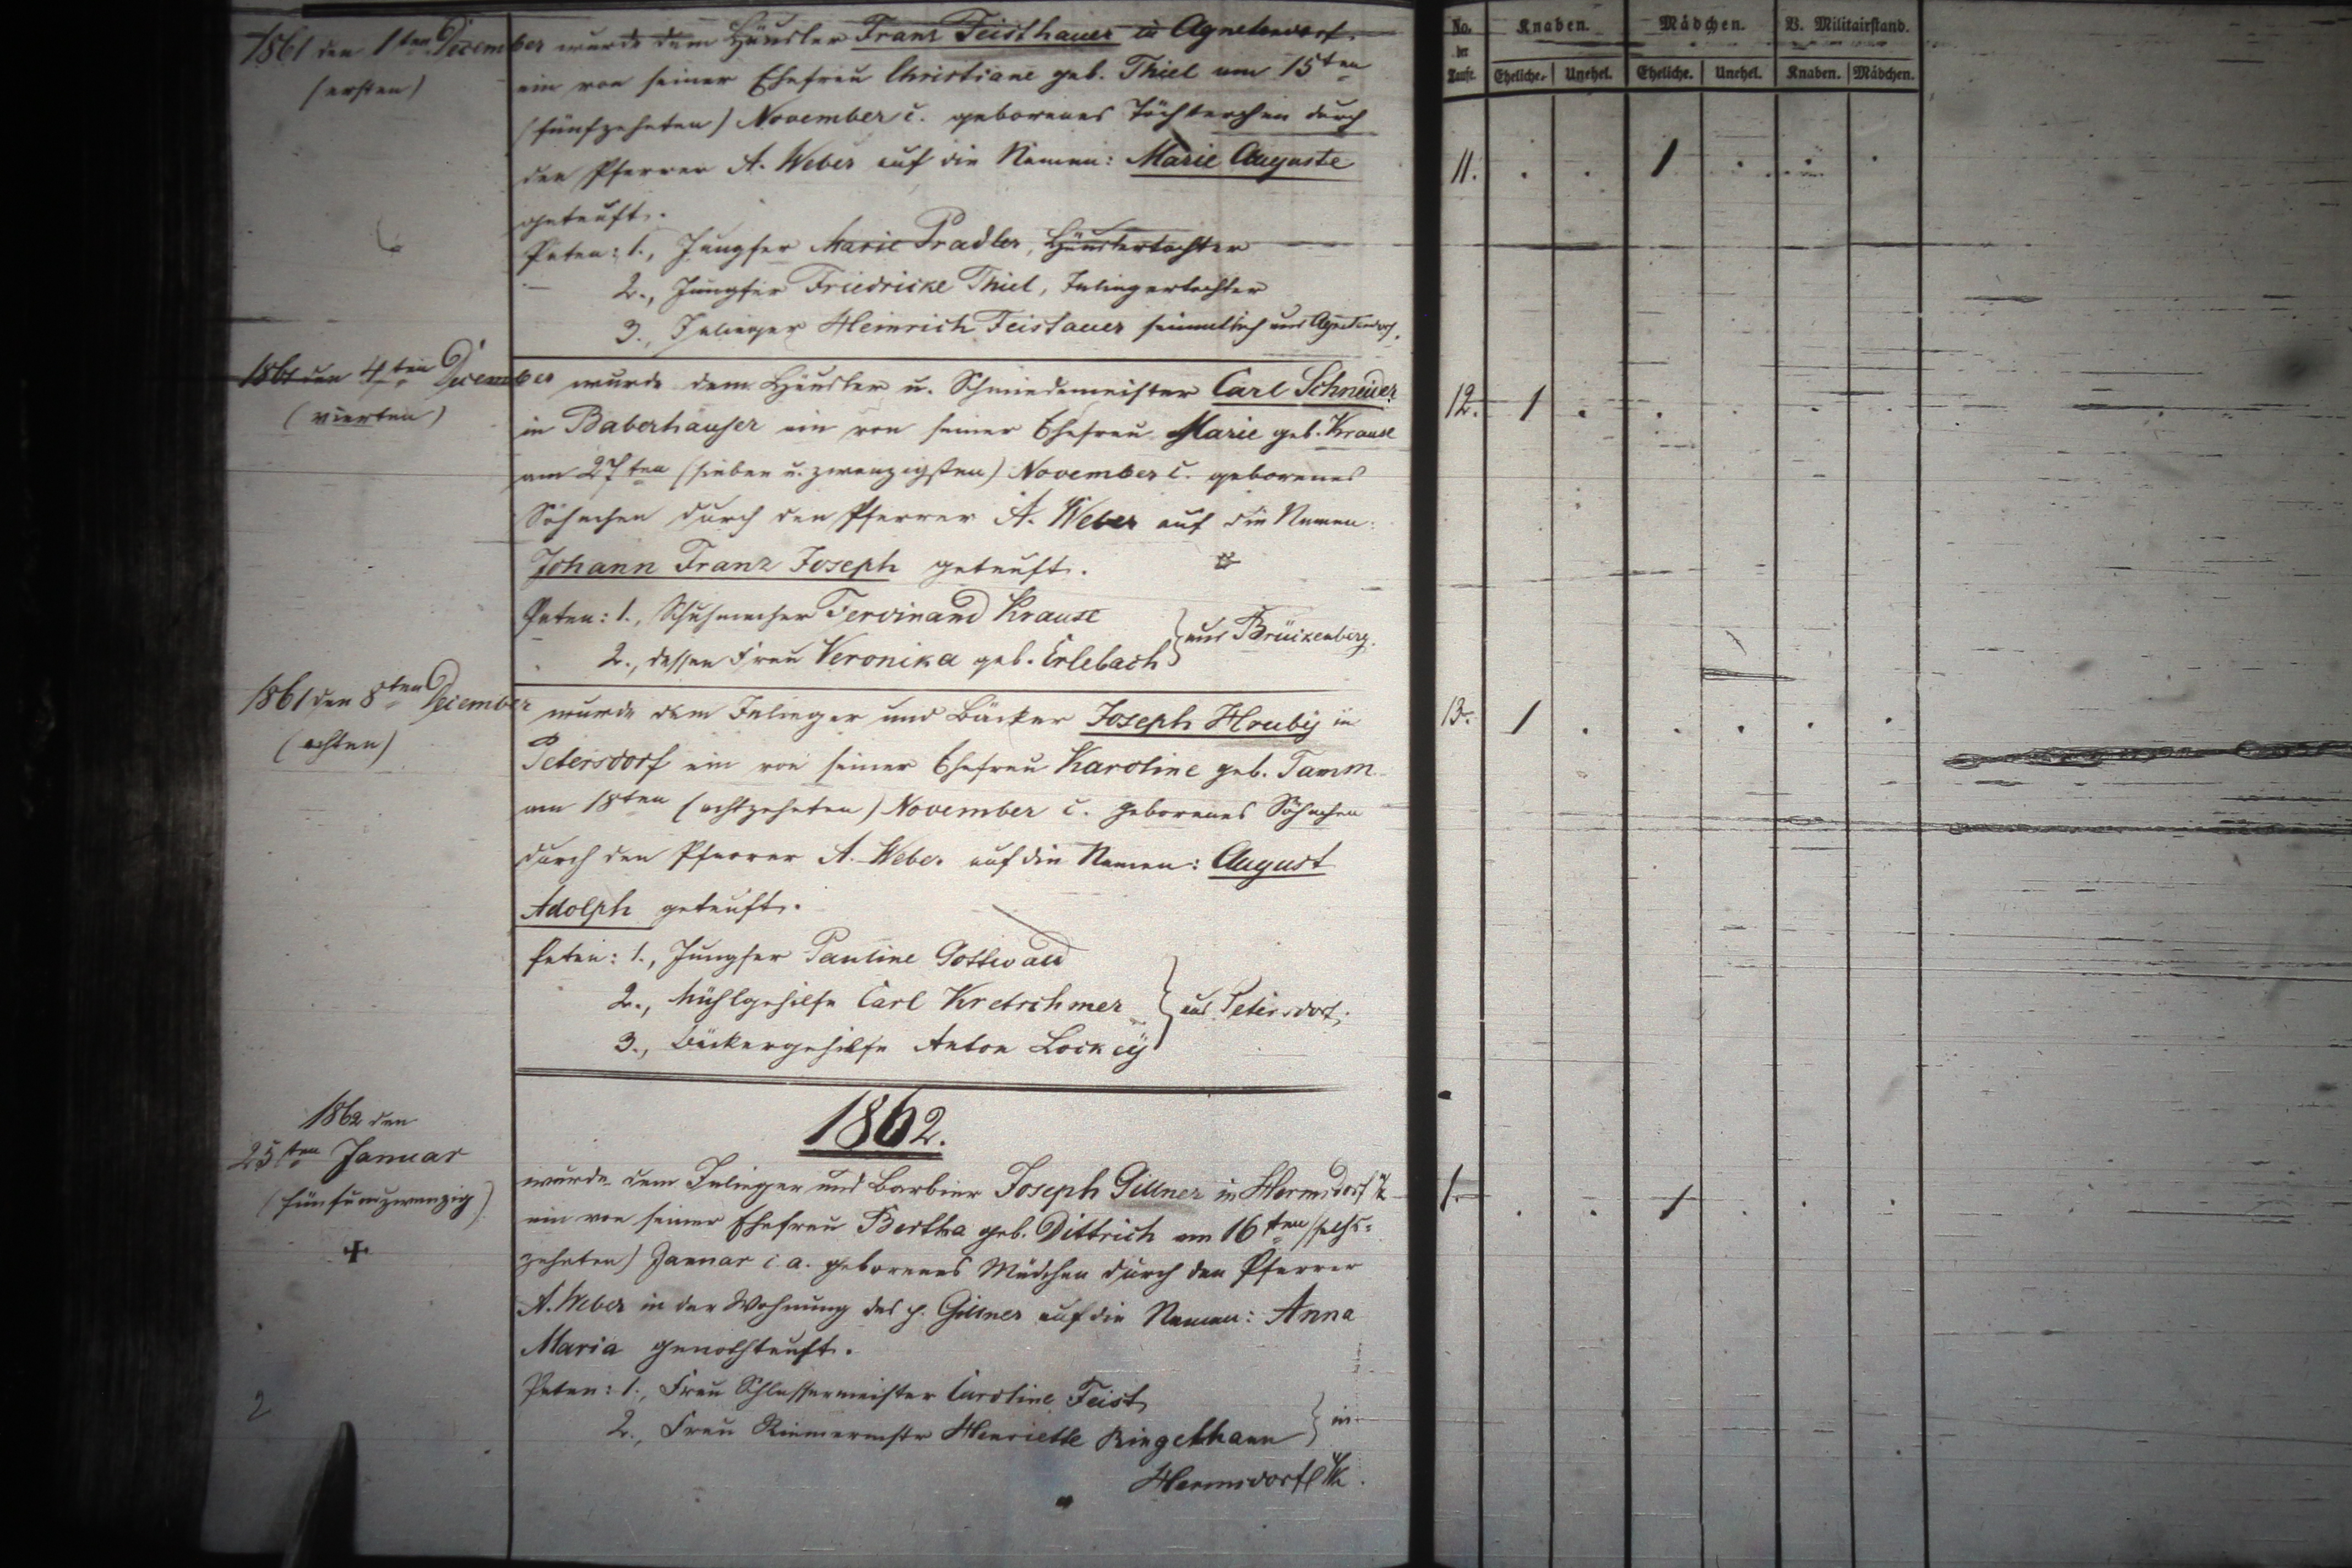 1861 den 1ten December
(ersten)
wurde dem Häusler Franz Feisthauer in Agnetendorf
ein von seiner Ehefrau Christiane geb. Thiel am 15ten
(fünfzehnten) November c. geborenes Töchterchen durch
den Pfarrer A. Weber auf die Namen: Marie Auguste
getauft.
Paten: 1., Jungfer Marie Pradler, Häuslertochter
2., Jungfer Friedricke Thiel, Inliegertochter
3., Inlieger Heinrich Feistauer sämmtlich aus Agnetendorf.
1861 den 4ten December
(vierten)
wurde dem Häusler u. Schmiedemeister Carl Schneider
in Baberhäuser ein von seiner Ehefrau Marie geb. Krause
am 27ten (sieben u. zwanzigsten) November c. geborenes
Söhnchen durch den Pfarrer A. Weber auf die Namen:
Johann Franz Joseph getauft.
Paten: 1., Schuhmacher Ferdinand Krause
2., dessen Frau Veronika geb. Erlebach } aus Brückenberg.
1861 den 8ten December
(achten)
wurde dem Inlieger und Bäcker Joseph Hruby in
Petersdorf ein von seiner Ehefrau Karoline geb. Tamm
am 18ten (achtzehnten) November c. geborenes Söhnchen
durch den Pfarrer A. Weber auf die Namen: August
Adolph getauft.
Paten: 1., Jungfer Pauline Gottwald
2., Mühlgehilfe Carl Kretschmer } aus Petersdorf.
3., Bäckergehilfe Anton
1862.
1862 den
25ten Januar
(fünfundzwanzig)
wurde dem Inlieger und Barbier Joseph Gillner in Hermsdorf u/k
ein von seiner Ehefrau Bertha geb. Dittrich am 16ten (sechs=
zehnten) Januar c. a. geborenes Mädchen durch den Pfarrer
A. Weber in der Wohnung des p. Gillner auf die Namen: Anna
Maria genothtauft.
Paten: 1., Frau Schlossermeister Caroline Feist
2., Frau Riemermstr Henriette Ringelhann } in
Hermsdorf u/k.
2
No. der Taufe.
Knaben. Mädchen. B. Militairstand.
Eheliche. Unehel. Eheliche. Unehel. Knaben. Mädchen.
11. . . 1 . . .
12. 1 . . . .
13. 1 . . . . .
1. . . 1 . . .